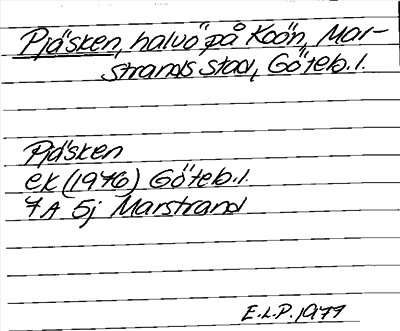 Pjäsken, halvö på Koön, Mar-
strands stad, Göteb.l.
Pjäsken
ek (1976) Göteb.l.
7A 5j Marstrand
E.L.P. 1977